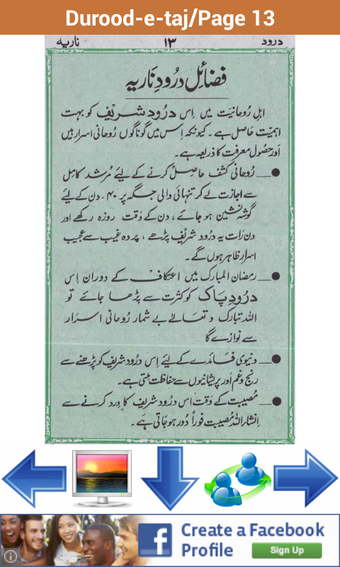 Durood-e-taj/Page 13
درود ۱۳ ناریہ
فضائل درود ناریہ
اہلِ روحانیت میں اِس درود شریف کو بہت
اہمیّت حاصل ہے۔ کیونکہ اِس میں گوناگوں رُوحانی اسرار ہیں
اور حصُولِ معرفت کا ذریعہ ہے۔
رُوحانی کشف حاصل کرنے کے لیئے مُرشد کامل
سے اجازت لے کر تنہائی والی جگہ پر ۴۰ دن کے لیئے
گوشہ نشین ہو جائے، دن کے وقت روزہ رکھے اور
دن رات یہ درود شریف پڑھے، پردہ غیب سے عجیب
اسرار ظاہر ہوں گے۔
رمضان المبارک میں اعتکاف کے دوران اِس
درودِ پاک کو کثرت سے پڑھا جائے تو
اللہ تبارک و تعالےٰ بے شمار رُوحانی اسرار
سے نوازے گا
دنیوی فائدے کے لیئے اِس درود شریف کو پڑھنے سے
رنج و غم اور پریشانیوں سے حفاظت ملتی ہے۔
مُصیبت کے وقت اس درود شریف کا وِرد کرنے سے
اِنشاء اللہ مُصیبت فوراً دُور ہو جاتی ہے۔
Create a Facebook
Profile
Sign Up